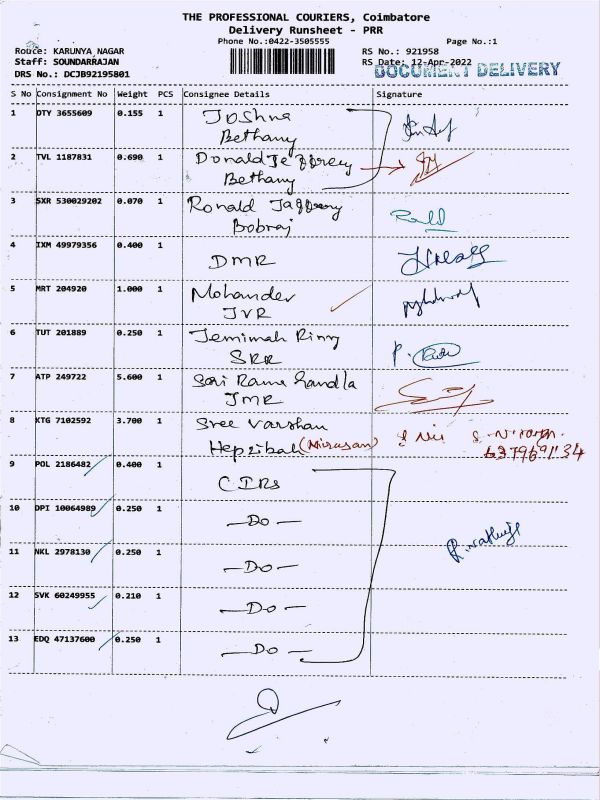 THE PROFESSIONAL COURIERS, Coimbatore
Delivery Runsheet - PRR
Phone No.:0422-3505555 Page No.:1
Route: KARUNYA NAGAR RS No.: 921958
Staff: SOUNDARRAJAN RS Date: 12-Apr-2022
DRS No.: DCJB92195801 DOCUMENT DELIVERY
S No Consignment No Weight PCS Consignee Details Signature
1 DTY 3655609 0.155 1 Joshna
Bethany
2 TVL 1187831 0.690 1 Donald Jeffrey
Bethany
3 SXR 530029202 0.070 1 Ronald Jaffrey
Bobraj
4 IXM 49979356 0.400 1 DMR
5 MRT 204920 1.000 1 Mohander
JVR
6 TUT 201889 0.250 1 Jemimah Rinny
SRR
7 ATP 249722 5.600 1 Sai Rama Gandla
JMR
8 KTG 7102592 3.700 1 Sree Varshan
Hepzibah (Nirasan)
9 POL 2186482 0.400 1 CIRs
10 DPI 10064989 0.250 1 -Do-
11 NKL 2978130 0.250 1 -Do-
12 SVK 60249955 0.210 1 -Do-
13 EDQ 47137600 0.250 1 -Do-